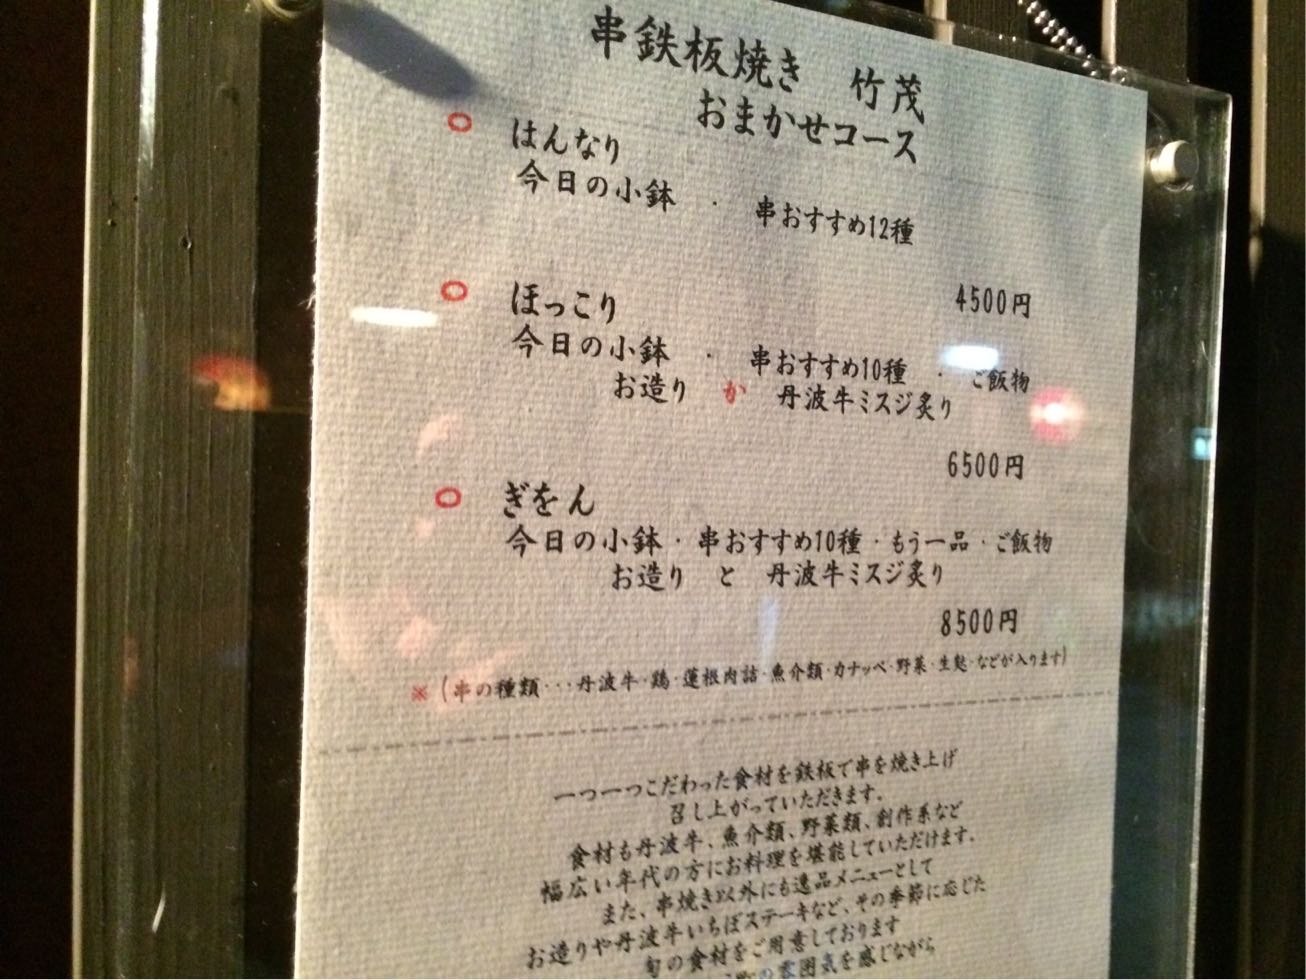 串鉄板焼き 竹茂
おまかせコース
○ はんなり
今日の小鉢 ・ 串おすすめ12種
4500円
○ ほっこり
今日の小鉢 ・ 串おすすめ10種 ・ ご飯物
お造り か 丹波牛ミスジ炙り
6500円
○ ぎをん
今日の小鉢・串おすすめ10種・もう一品・ご飯物
お造り と 丹波牛ミスジ炙り
8500円
※(串の種類・・・丹波牛・鶏・蓮根肉詰・魚介類・カナッペ・野菜・生麩・などが入ります)
一つ一つこだわった食材を鉄板で串を焼き上げ
召し上がっていただきます。
食材も丹波牛、魚介類、野菜類、創作系など
幅広い年代の方にお料理を堪能していただけます。
また、串焼き以外にも逸品メニューとして
お造りや丹波牛いちぼステーキなど、その季節に応じた
旬の食材をご用意しております
町の雰囲気を感じながら